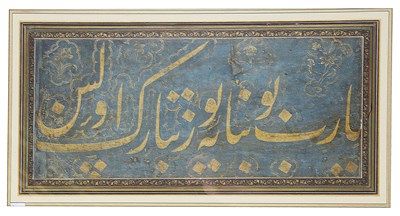 يا رب بو بنايه يوز تبارك اولسن